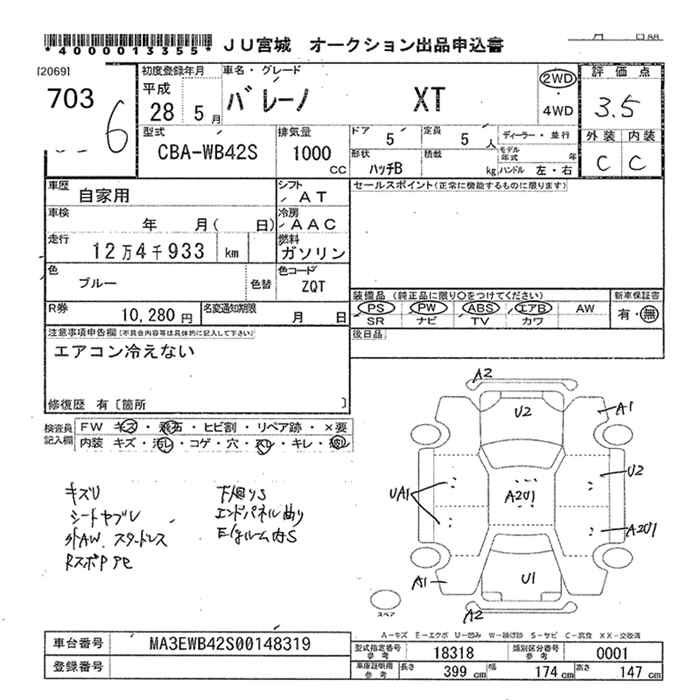 *4000013355* JU宮城 オークション出品申込書
[2069]
703
6
初度登録年月
平成
28 5月
車名・グレード
バレーノ XT
2WD
4WD
評価点
3.5
外装 内装
C C
型式
CBA-WB42S
排気量
1000
CC
ドア 5
定員 5人
ディーラー・並行
形状 ハッチB
積載 kg
モデル年式 年
ハンドル 左・右
車歴
自家用
シフト
AT
セールスポイント(正常に機能するものに限ります)
車検
年 月( 日)
冷房
AAC
走行
12万4千933 km
燃料
ガソリン
色
ブルー
色替
色コード
ZQT
装備品(純正品に限り○をつけてください)
新車保証書
PS PW ABS エアB AW
有・無
SR ナビ TV カワ
R券
10,280円
名変通知期限
月 日
後日品
注意事項申告欄(不具合内容等は具体的に記入して下さい)
エアコン冷えない
修復歴 有〔箇所 〕
検査員記入欄
FW キズ・飛石・ヒビ割・リペア跡・×要
内装 キズ・汚レ・コゲ・穴・スレ・キレ・
キズU
シートヤブレ
外AW、スタッドレス
下廻りS
エンドパネル曲り
A2
U2
A1
U2
UA1
A2U1
A2U1
A1
U1
A2
スペア
A-キズ E-エクボ U-凹み W-補修跡 S-サビ C-腐食 XX-交換済
車台番号
MA3EWB42S00148319
登録番号
型式指定番号 参考
18318
類別区分番号 参考
0001
車庫証明用 参考
長さ 399 cm
幅 174 cm
高さ 147 cm